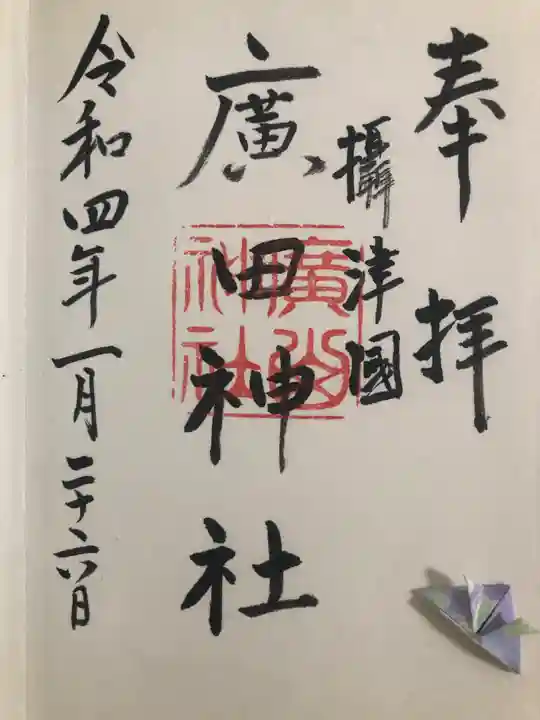 奉拝
攝津國
廣田神社
令和四年一月二十六日